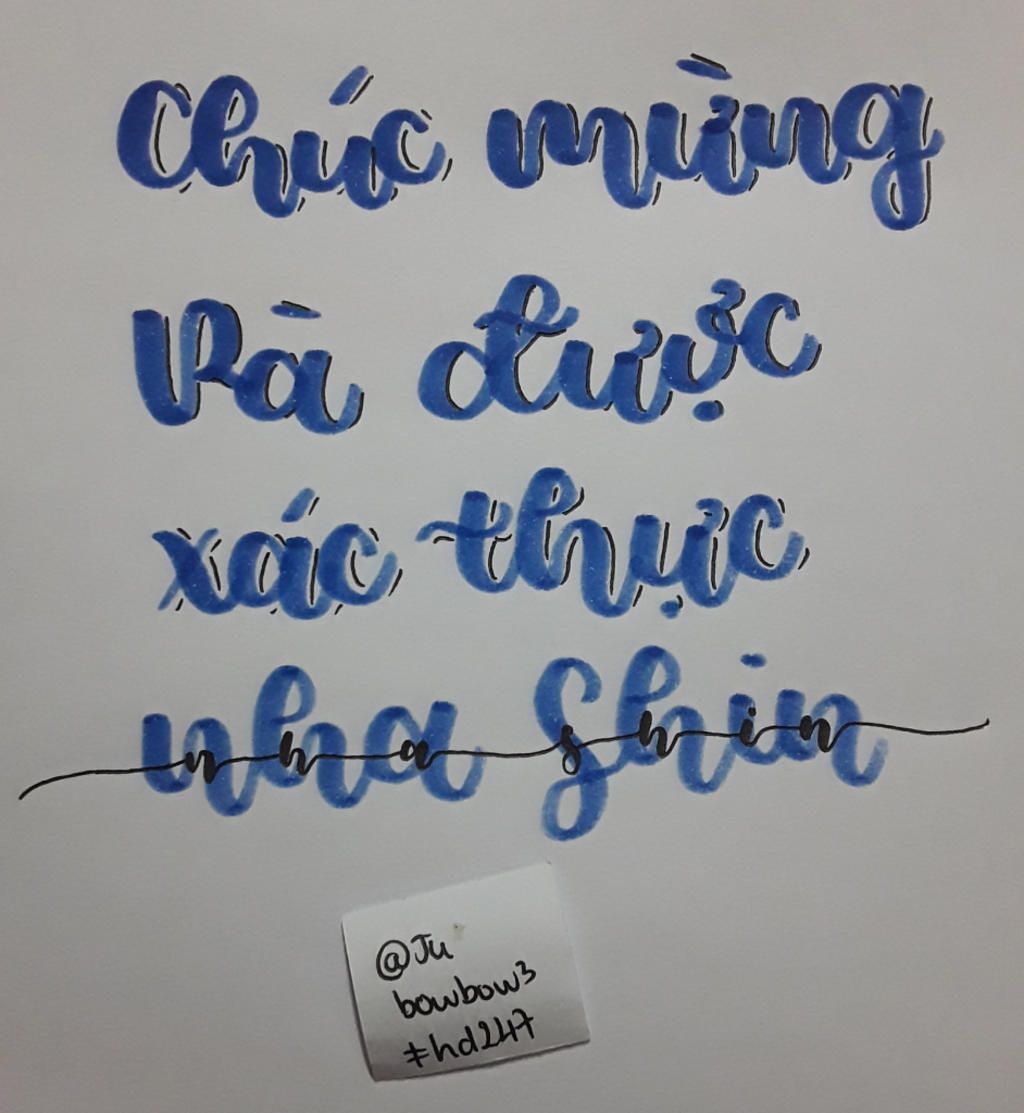 Chúc mừng
Và được
xác thực
nha Shin
nha shin
@Ju
bowbow3
#hd247